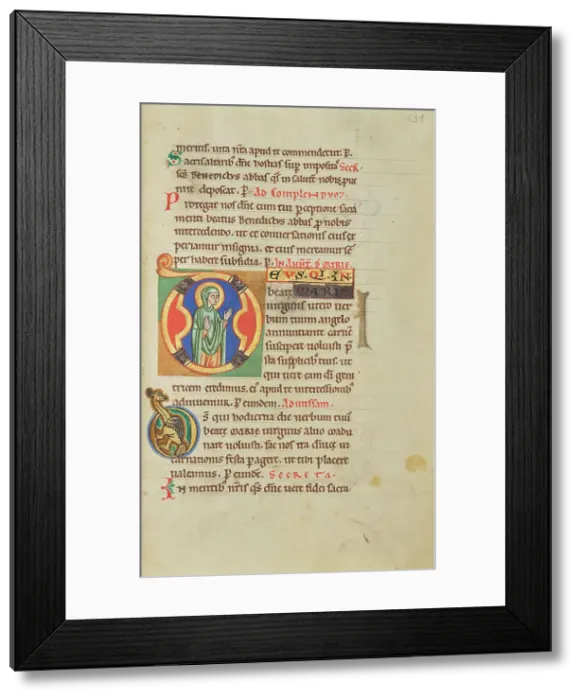 131
meritis. uita nr̄a apud te commendetur. P.
Sacris altarib; dn̄e hostias sup̄ impositas Secr.
sc̄s BENEDICTVS abbas qs̄ in salutē nobis p̱ue
nire deposcat. P. Ad complendū.
Protegat nos dn̄e cum tui p̱ceptione sacra
menti beatus Benedictus abbas p̱ nobis
intercedendo. ut et conuersationis eius ex
periamur insignia. et eius mereamur sē
per habere subsidia. P. IN Annt. S MARIE.
DEVS. QI. IN.
beate MARIE
uirginis utero uer
bum tuum angelo
annuntiante carnē
suscipere uoluisti p̄
sta supplicib; tuis. ut
qui uere eam dī geni
tricem credimus. eī apud te intercessionib;
adiuuemur. P. eundem. Ad missam.
Ds̄ qui hodierna die uerbum tuū
beate MARIE uirginis aluo coadu
nare uoluisti. fac nos ita dn̄ice in
carnationis festa p̱agere. ut tibi placere
ualeamus. P. eundē. Secreta.
IN mentib; nr̄is qs̄ dn̄e uere fidei sacra